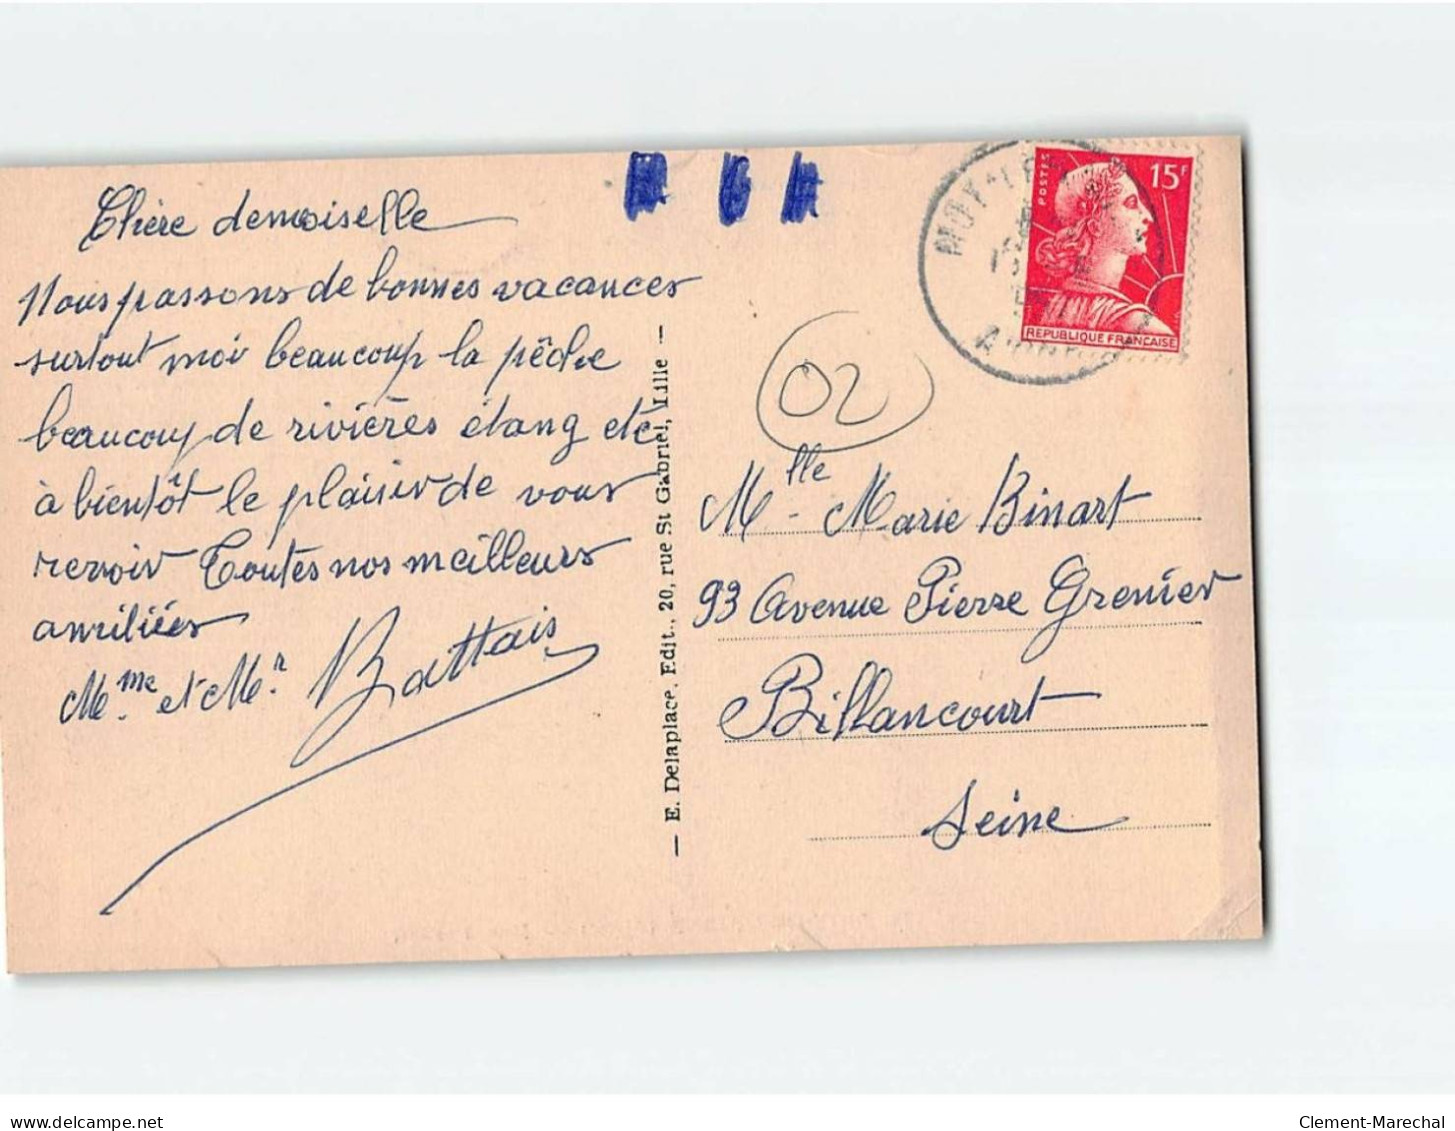 Chère demoiselle
Nous passons de bonnes vacances
surtout moi beaucoup la pêche
beaucoup de rivières étang etc
à bientôt le plaisir de vous
revoir Toutes nos meilleurs
amitiées
Mme et Mr Battais
— E. Delaplace, Edit., 20, rue St Gabriel, Lille —
POSTES
15F
REPUBLIQUE FRANÇAISE
02
Mlle Marie Binart
93 Avenue Pierre Grenier
Billancourt
Seine
Clement-Marechal